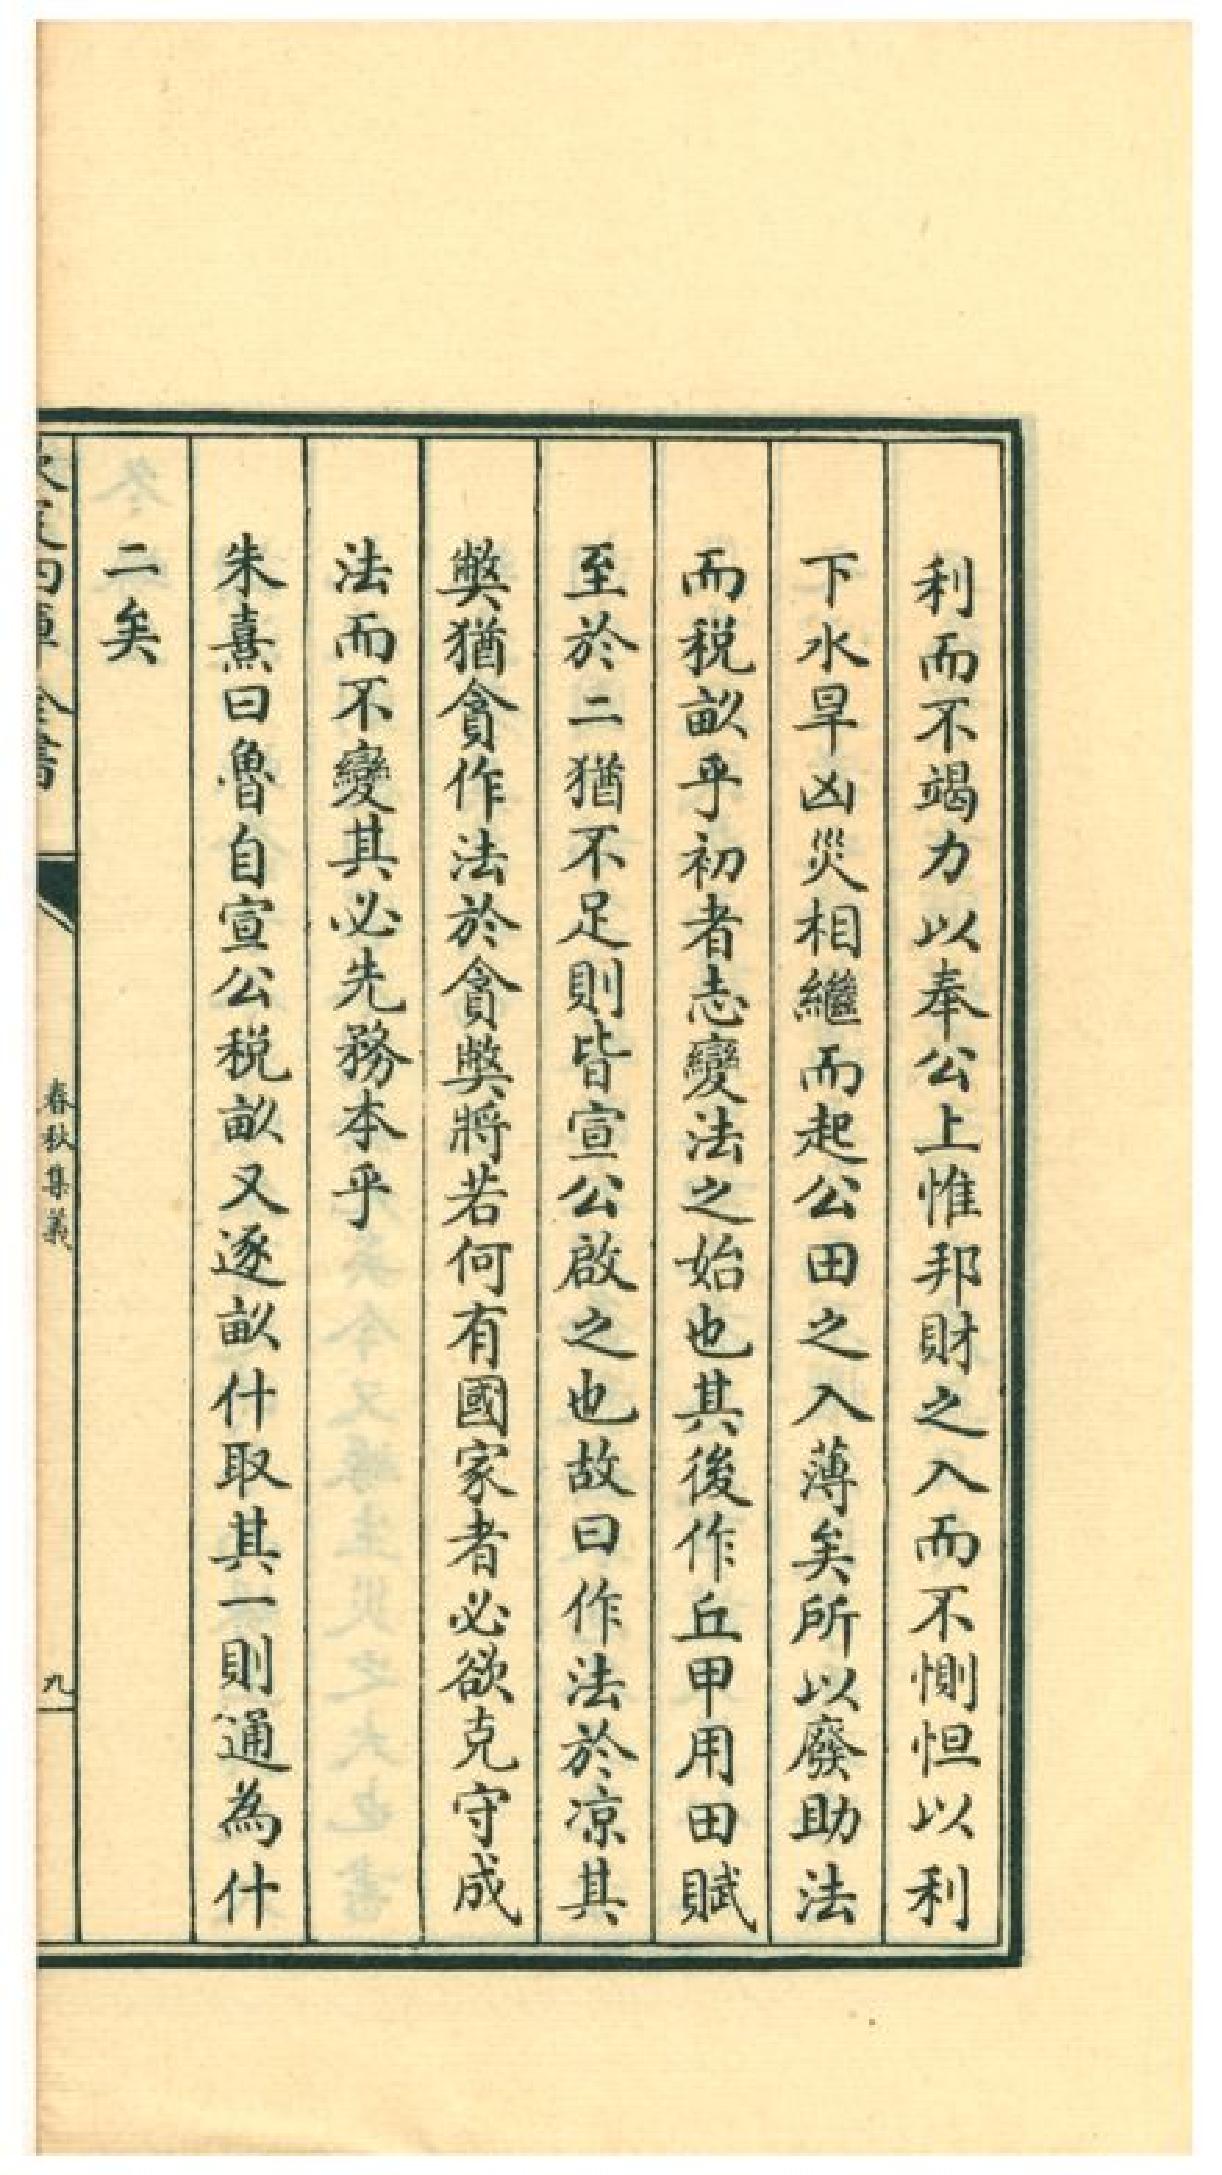 利而不竭力以奉公上惟邦財之入而不惻怛以利
下水旱凶災相繼而起公田之入薄矣所以廢助法
而税畝乎初者志變法之始也其後作丘甲用田賦
至於二猶不足則皆宣公啟之也故曰作法於凉其
獘猶貪作法於貪獘將若何有國家者必欲克守成
法而不變其必先務本乎
朱熹曰魯自宣公税畝又逐畝什取其一則通為什
二矣
春秋集義
九